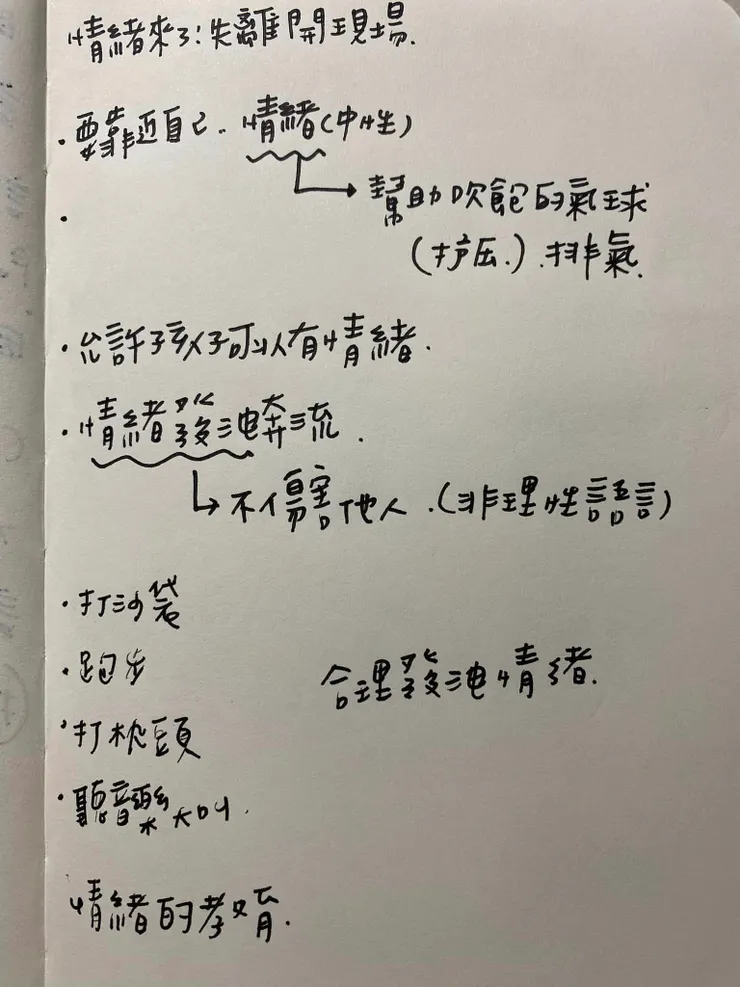 情緒來了!先離開現場.
· 要靠近自己. 情緒(中性)
幫助吹飽的氣球
·
(抒压.).排氣
· 允許孩子可以有情緒.
· 情緒發洩奔流.
不傷害他人.(非理性語言)
· 打沙袋
· 跑步
合理發洩情緒.
· 打枕頭
· 聽音樂大叫.
情緒的教育.